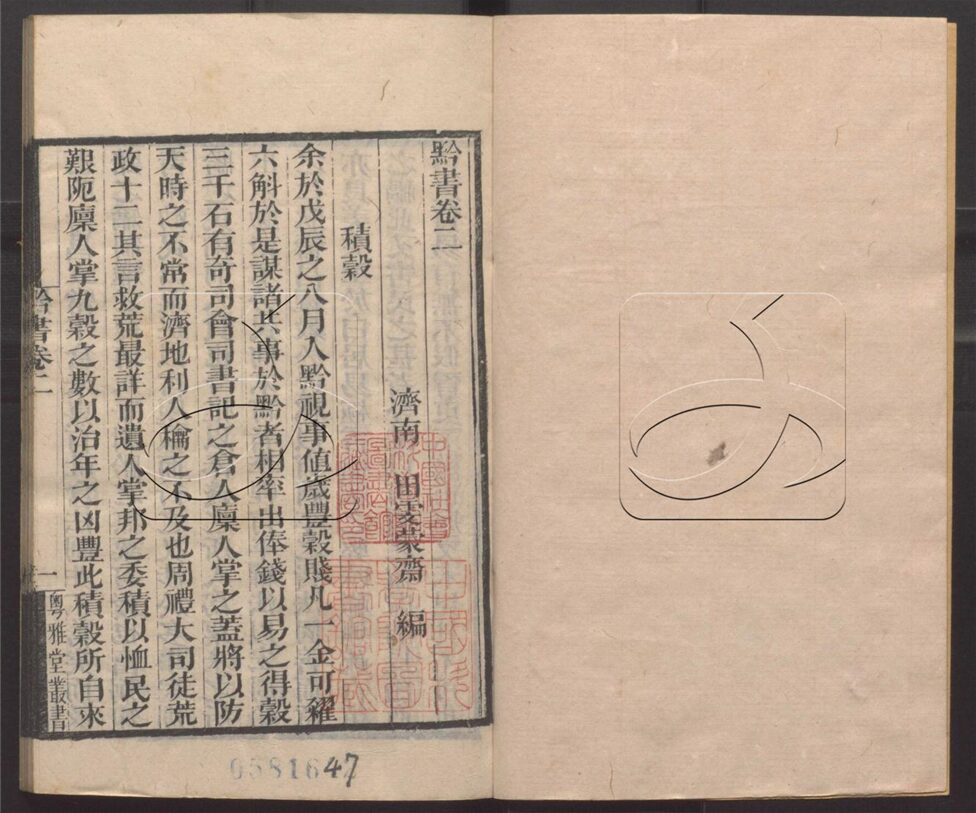 黔書卷二
濟南 田雯蒙齋 編
積穀
余於戊辰之八月入黔視事値歲豐穀賤凡一金可糴
六斛於是謀諸共事於黔者相率出俸錢以易之得穀
三千石有奇司會司書記之倉人廩人掌之蓋將以防
天時之不常而濟地利人和之不及也周禮大司徒荒
政十二其言救荒最詳而遺人掌邦之委積以恤民之
艱阨廩人掌九穀之數以治年之凶豐此積穀所自來
黔書卷二
一
粵雅堂叢書
0581647